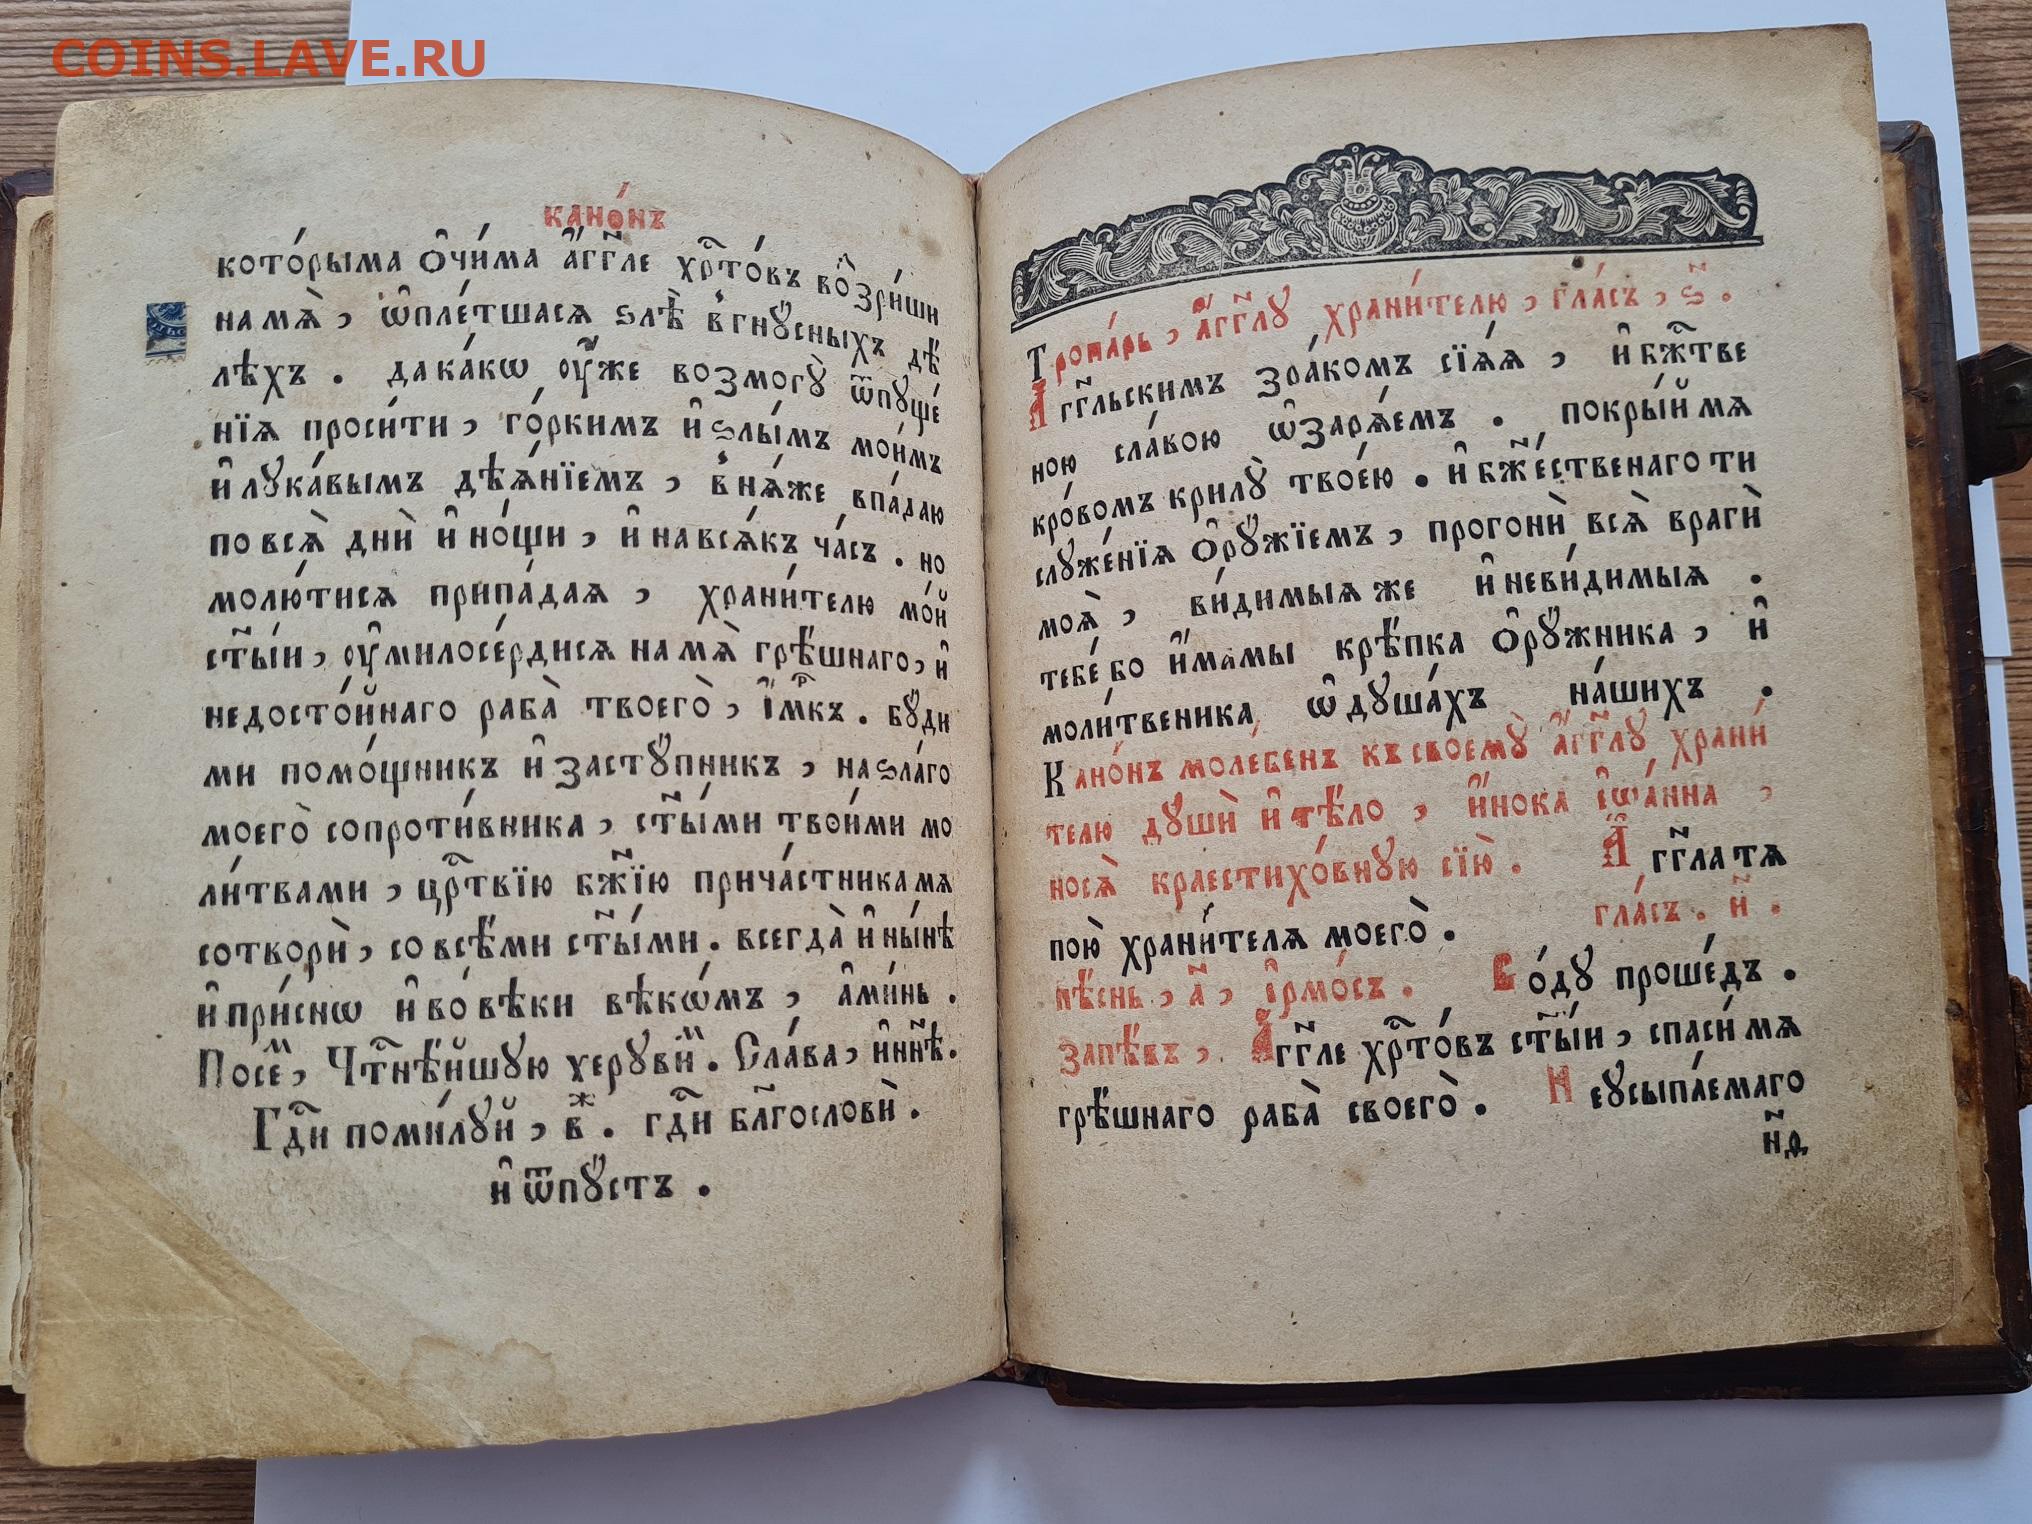 COINS.LAVE.RU
кано́нъ
кото́рыма ѻ҆чи́ма а҆́гг҃ле хрⷭ҇то́въ воз̾зри́ши
на мѧ̀, ѡ҆пле́тшасѧ ѕлѣ̀ в̾гнꙋ́сныхъ дѣ́
лѣхъ. да ка́кѡ ᲂу҆́же возмогꙋ̀ ѿпꙋще́
нїѧ проси́ти, го́ркимъ и҆ ѕлы́мъ мои́мъ
и҆ лꙋка́вымъ дѣѧ́нїемъ, в̾нѧ́же впа́даю
по всѧ̀ днѝ и҆ но́щи, и҆ на всѧ́къ ча́съ. но
молю́тисѧ припа́даѧ, храни́телю мо́й
ст҃ы́и, ᲂу҆милосе́рдисѧ на мѧ̀ грѣ́шнаго, и҆
недосто́йнаго раба̀ твоего̀, и҆́мⷬ҇къ. бꙋ́ди
ми помо́щникъ и҆ застꙋ́пникъ, на ѕла́го
моего̀ сопроти́вника, ст҃ы́ми твои́ми мо
ли́твами, црⷭ҇твїю бж҃їю прича́стника мѧ
сотворѝ, со всѣ́ми ст҃ы́ми. всегда̀ и҆ ны́нѣ
и҆ при́снѡ и҆ во́ вѣки вѣкѡ́мъ, а҆ми́нь.
Посеⷨ, Чтⷭ҇нѣ́йшꙋю херꙋвиⷨ. Сла́ва, и҆ нн҃ѣ.
Гдⷭ҇и поми́лꙋй, в҃ⷤ. гдⷭ҇и бл҃гословѝ.
и҆ ѿпꙋ́стъ.
Тропа́рь, а҆́гг҃лꙋ храни́телю, гла́съ, ѕ҃.
А҆́гг҃льскимъ зра́комъ сїѧ́ѧ, и҆ бжⷭ҇тве
ною сла́вою ѡ҆зарѧ́емъ. покры́й мѧ
кро́вомъ крилꙋ̀ твое́ю. и҆ бж҃е́ственаго ти
слꙋже́нїѧ ѻ҆рꙋ́жїемъ, прогонѝ всѧ̀ врагѝ
моѧ̀, ви́димыѧ же и҆ неви́димыѧ.
тебе́ бо и҆́мамы крѣ́пка ѻ҆рꙋ́жника, и҆
моли́твеника ѡ҆ дꙋша́хъ на́шихъ.
Кано́нъ моле́бенъ къ своемꙋ̀ а҆́гг҃лꙋ храни́
телю дꙋшѝ и҆ тѣ́ло, и҆́нока і҆ѡа́нна,
носѧ̀ краестихо́внꙋю сїю̀. А҆́гг҃ла тѧ
пою̀ храни́телѧ моего̀. гла́съ. и҃.
пѣ́снь, а҃, і҆рмо́съ. Во́дꙋ проше́дъ.
запѣ́въ, А҆́гг҃ле хрⷭ҇то́въ ст҃ы́и, спаси́ мѧ
грѣ́шнаго раба̀ своего̀. Неꙋсыпа́емаго
н҃д